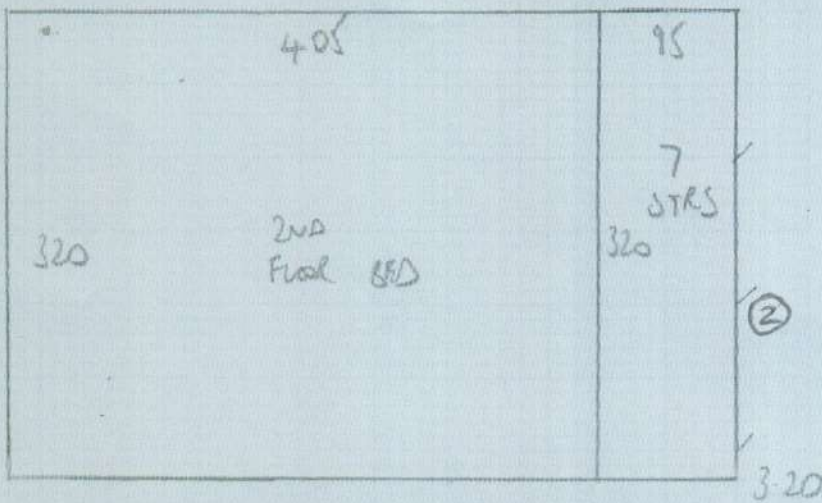 405
95
7
STRS
320
2ND
FLOOR BED
320
2
3.20